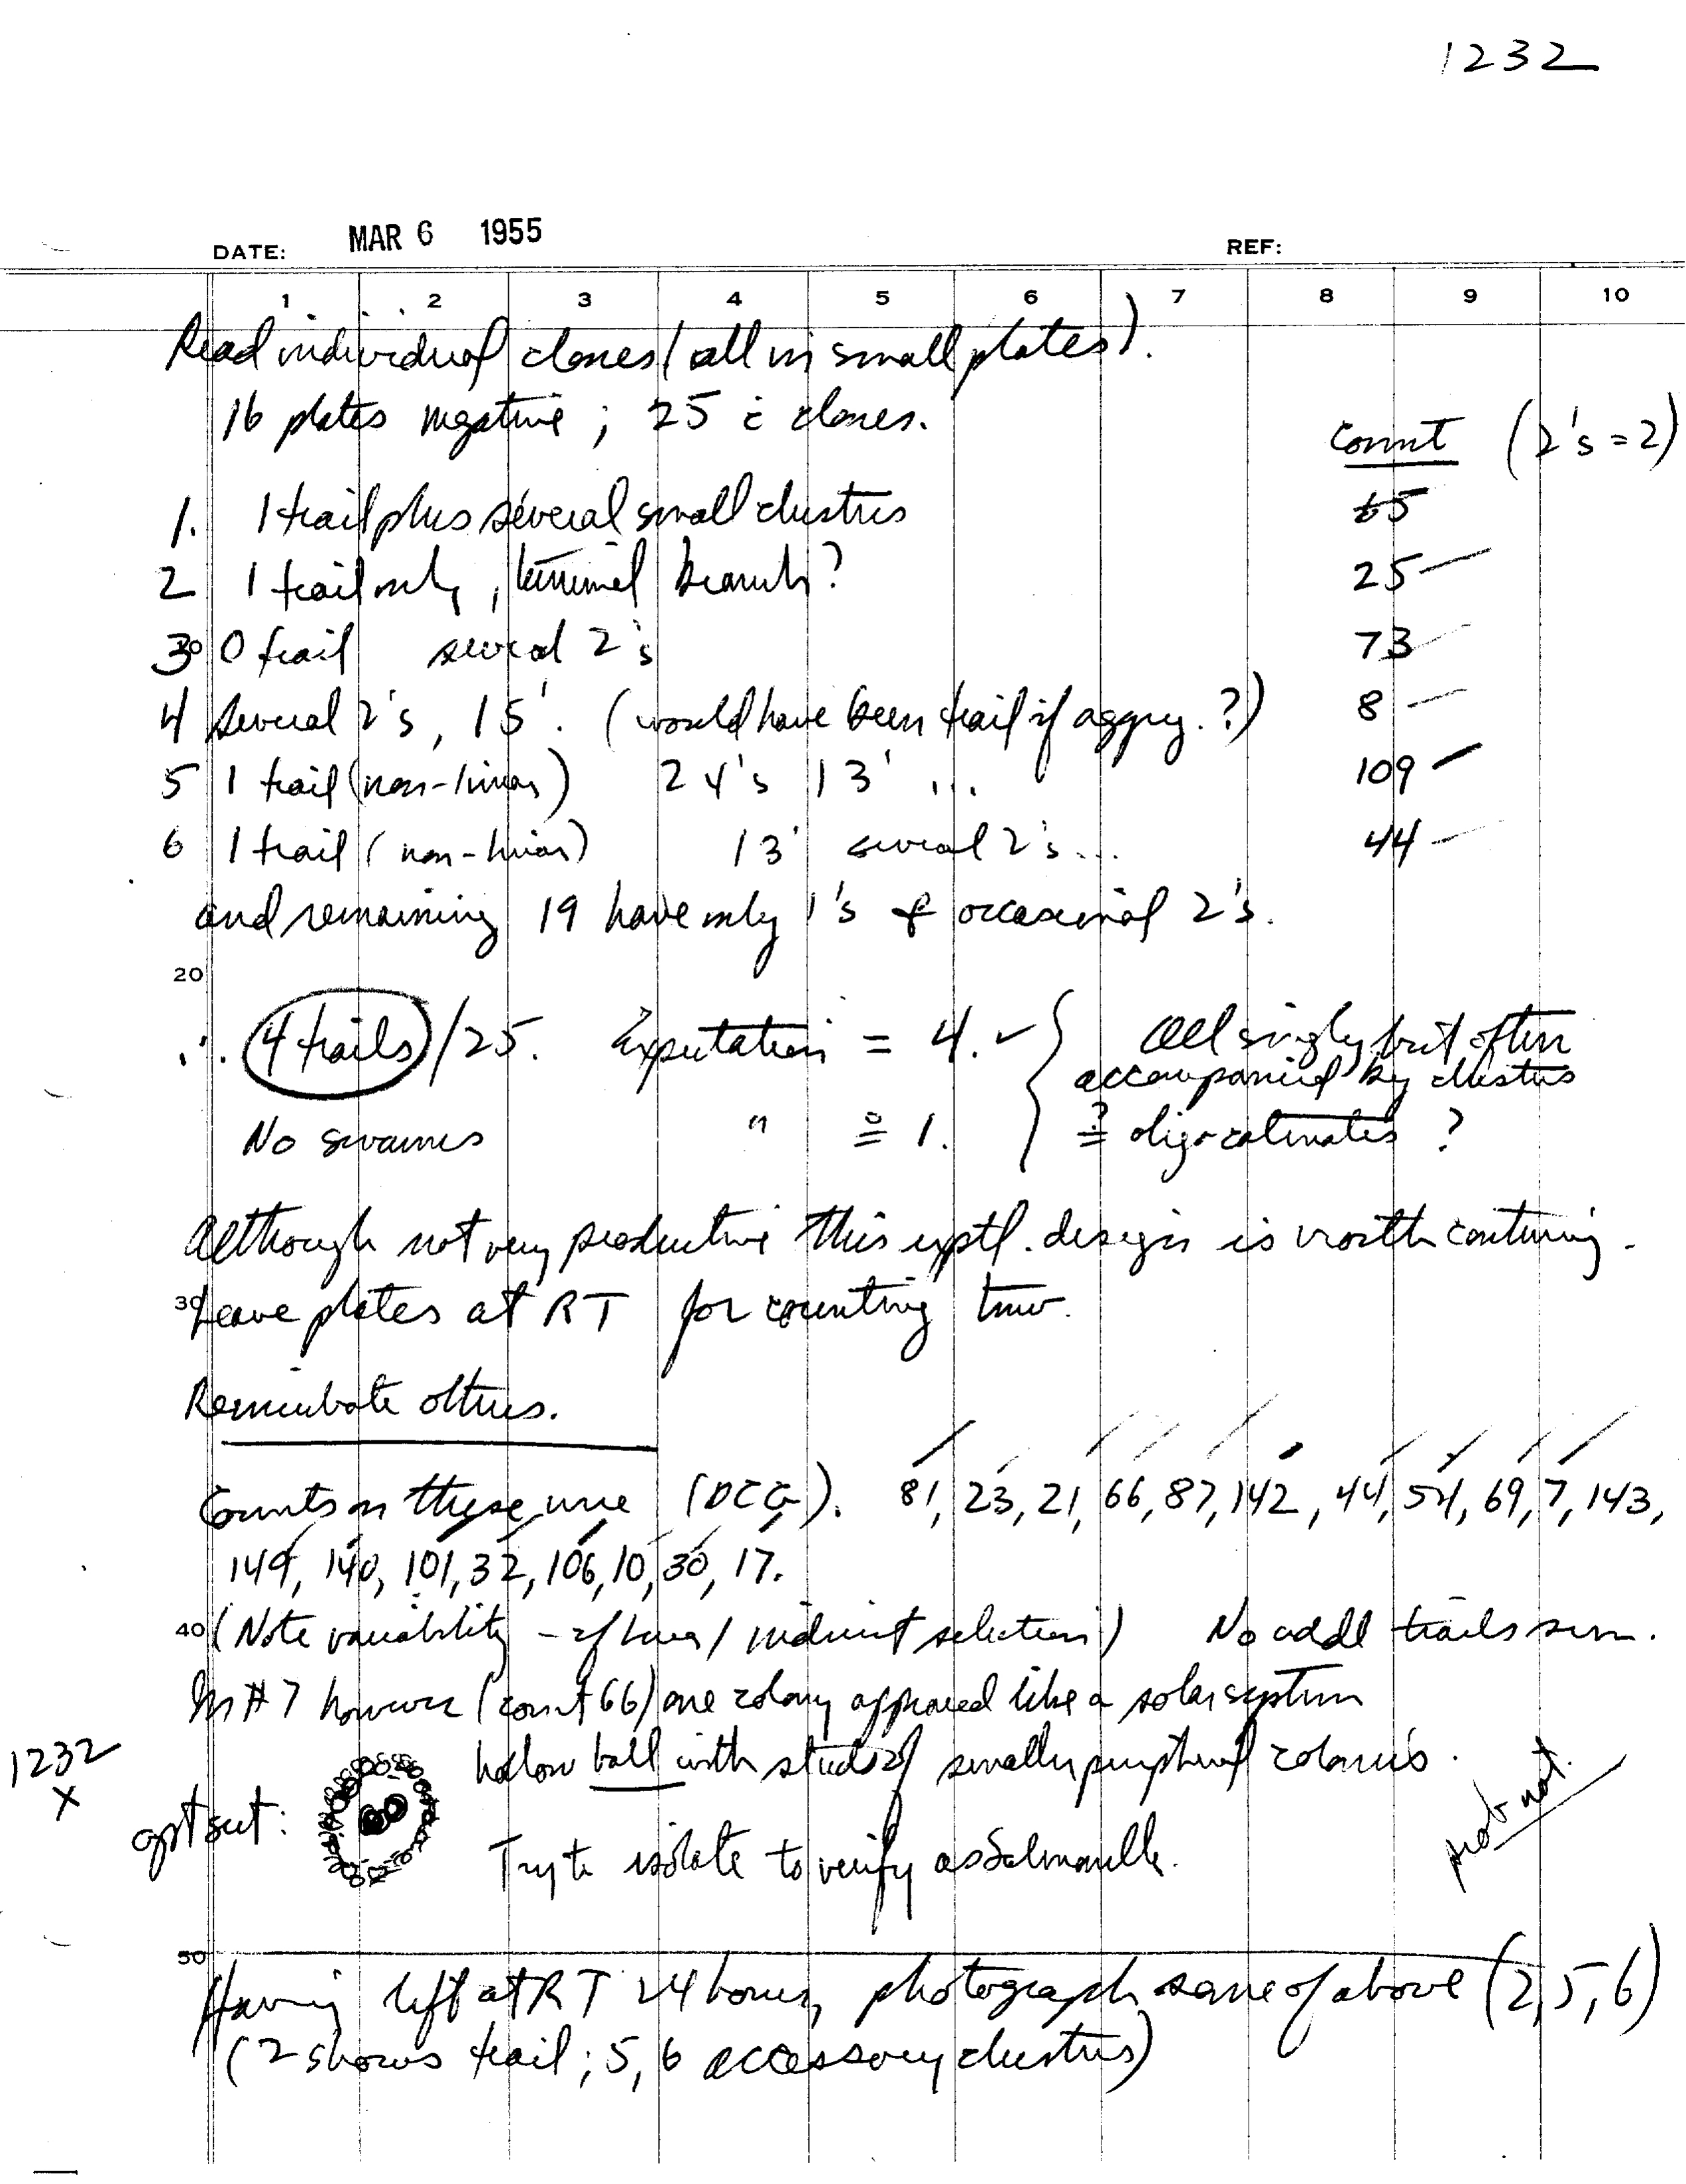 1232
DATE: MAR 6 1955 REF:
1 2 3 4 5 6 7 8 9 10
Read individual clones (all in small plates).
16 plates negative; 25 c̄ clones.
count (2's = 2)
1. 1 trail plus several small clusters 65
2 1 trail only, terminal branch? 25
3 0 trail several 2's 73
4 Several 2's, 1 5'. (would have been trail if aggreg.?) 8
5 1 trail (non-linear) 2 4's 1 3' ... 109
6 1 trail (non-linear) 1 3' several 2's... 44
and remaining 19 have only 1's & occasional 2's.
20
∴ 4 trails/25. Expectation = 4. ✓ All singly but often
accompanied by clusters
No swarms " ≅ 1. ? = oligocatenates ?
Although not very productive this exptl. design is worth continuing.
30
Leave plates at RT for counting tmw.
Reincubate others.
Counts on these were (DCG). 81, 23, 21, 66, 87, 142, 44, 54, 69, 7, 143,
149, 140, 101, 32, 106, 10, 30, 17.
40
(Note variability - / indirect selection) No addl trails seen.
In #7 however (count 66) one colony appeared like a solar system
hollow ball with studs of smaller peripheral colonies.
1232
x
opt sect:
Try to isolate to verify as Salmonella.
prob not.
50
Having left at RT 24 hours, photograph some of above (2, 5, 6)
(2 shows trail; 5, 6 accessory clusters)